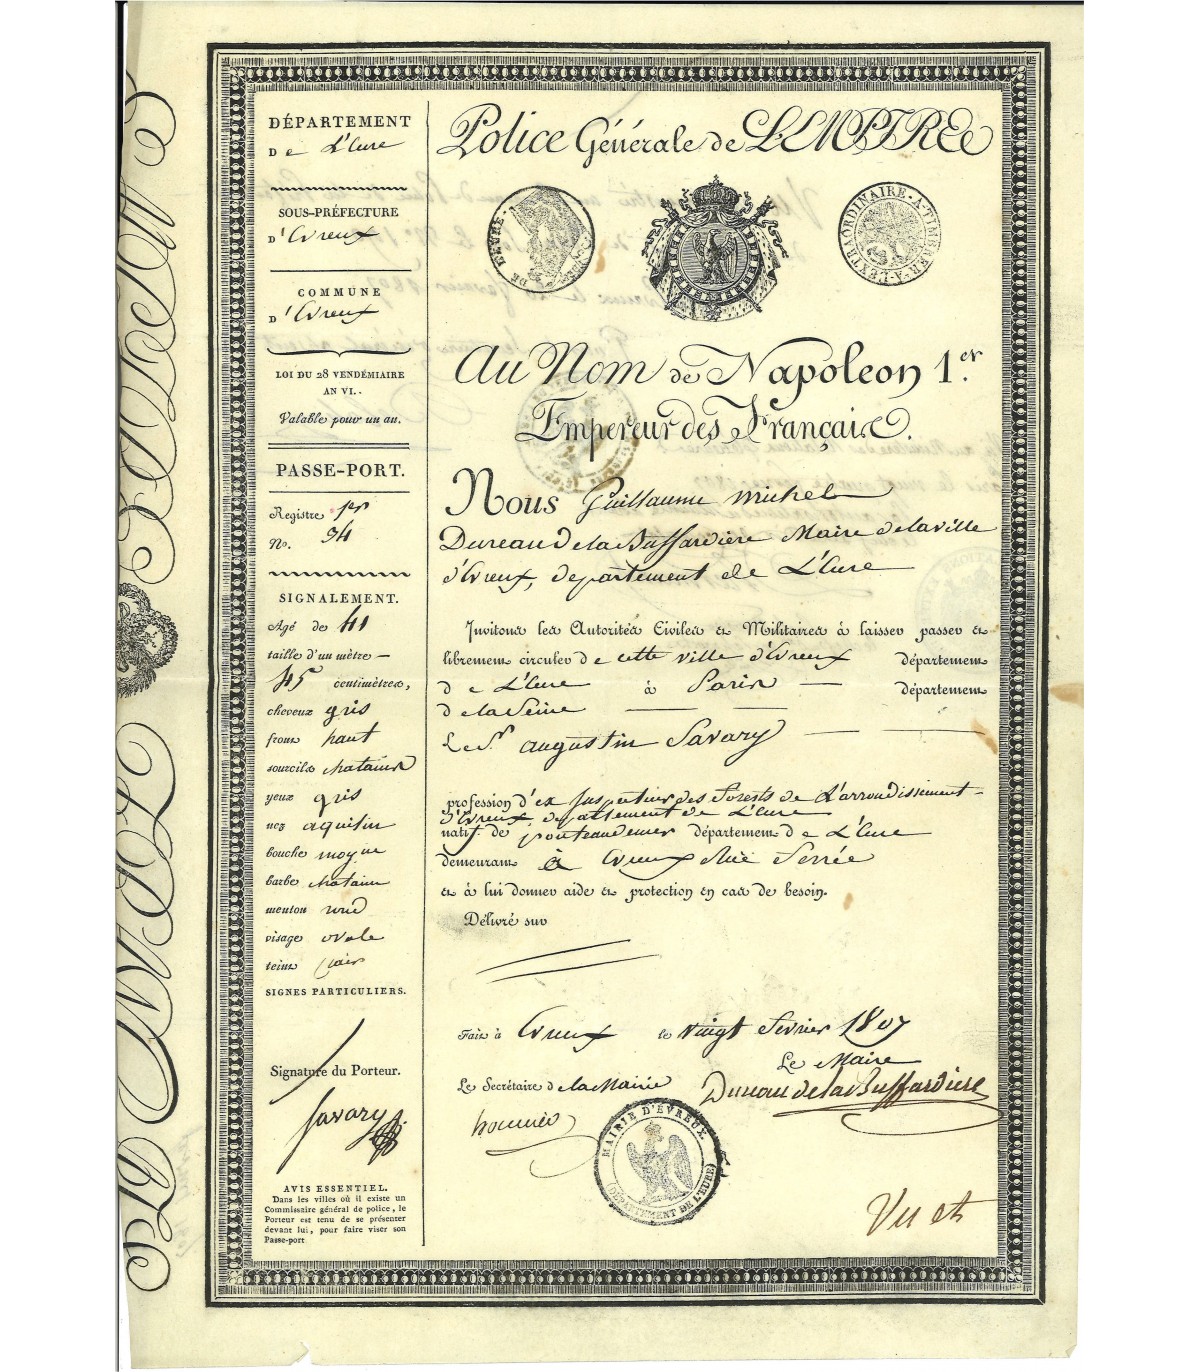 DÉPARTEMENT
De L'Eure
SOUS-PRÉFECTURE
D'Evreux
COMMUNE
D'Evreux
LOI DU 28 VENDÉMIAIRE
AN VI.
Valable pour un an.
PASSE-PORT.
Registre 1er
No. 94
SIGNALEMENT.
Agé de 41
taille d'un mètre
45 centimètres,
cheveux gris
front haut
sourcils chatains
yeux gris
nez aquilin
bouche moyne
barbe chatain
menton rond
visage ovale
teint clair
SIGNES PARTICULIERS.
Signature du Porteur.
Savary
AVIS ESSENTIEL.
Dans les villes où il existe un
Commissaire général de police, le
Porteur est tenu de se présenter
devant lui, pour faire viser son
Passe-port
Police Générale de L'EMPIRE
DE L'EURE.
A TIMBRER A L'EXTRAORDINAIRE.
Au Nom de Napoleon 1.er
Empereur des Français.
Nous Guillaume Michel
Dureau de la Buffardière Maire de la ville
d'Evreux, departement de L'Eure
Invitons les Autorités Civiles et Militaires à laisser passer et
librement circuler de cette ville d'Evreux département
de L'Eure à Paris département
de la Seine
Le Sr. augustin Savary
profession d'ex Inspecteur des Forests de L'arrondissement
d'Evreux, departement de L'Eure
natif de pontaudemer département de L'Eure
demeurant à Evreux Rue Ferrée
et à lui donner aide et protection en cas de besoin.
Délivré sur
Fait à Evreux le vingt Fevrier 1807
Le Maire
Le Secrétaire de la Mairie Dureau de la Buffardiere
MAIRIE D'ÉVREUX.
(DÉPARTEMENT DE L'EURE)
Vu et